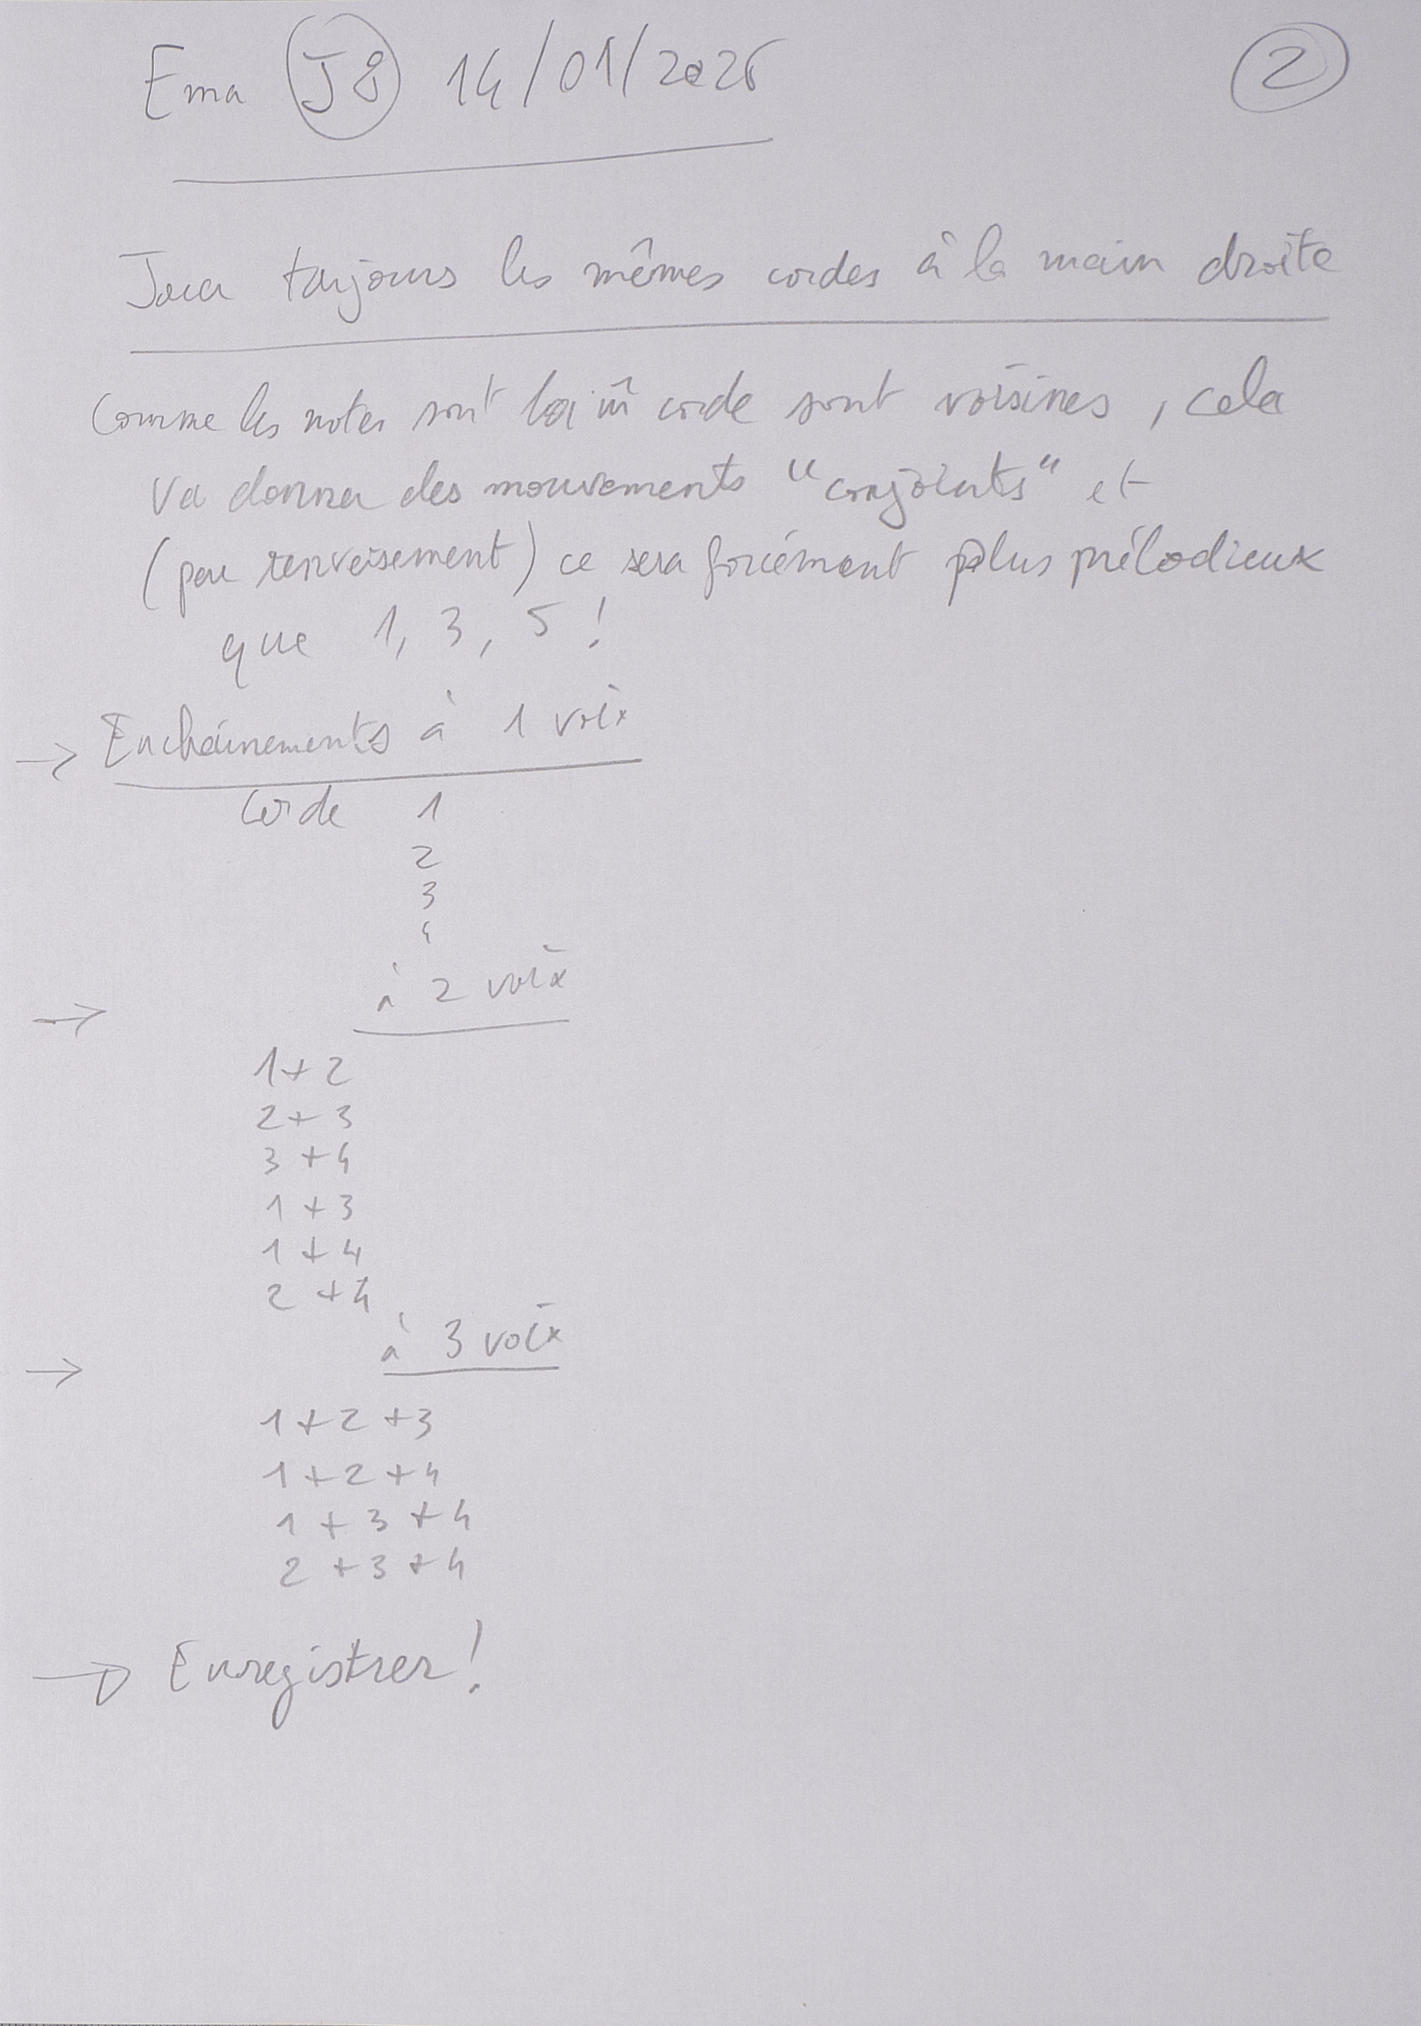 Ema J8 14/01/2026
2
Jouer toujours les mêmes cordes à la main droite
Comme les notes sont la m̂ corde sont voisines, cela
va donner des mouvements "conjoints" et
(par renversement) ce sera forcément plus mélodieux
que 1, 3, 5 !
→ Enchaînements à 1 voix
Corde 1
2
3
4
→ à 2 voix
1+2
2+3
3+4
1+3
1+4
2+4
→ à 3 voix
1+2+3
1+2+4
1+3+4
2+3+4
→ Enregistrer !